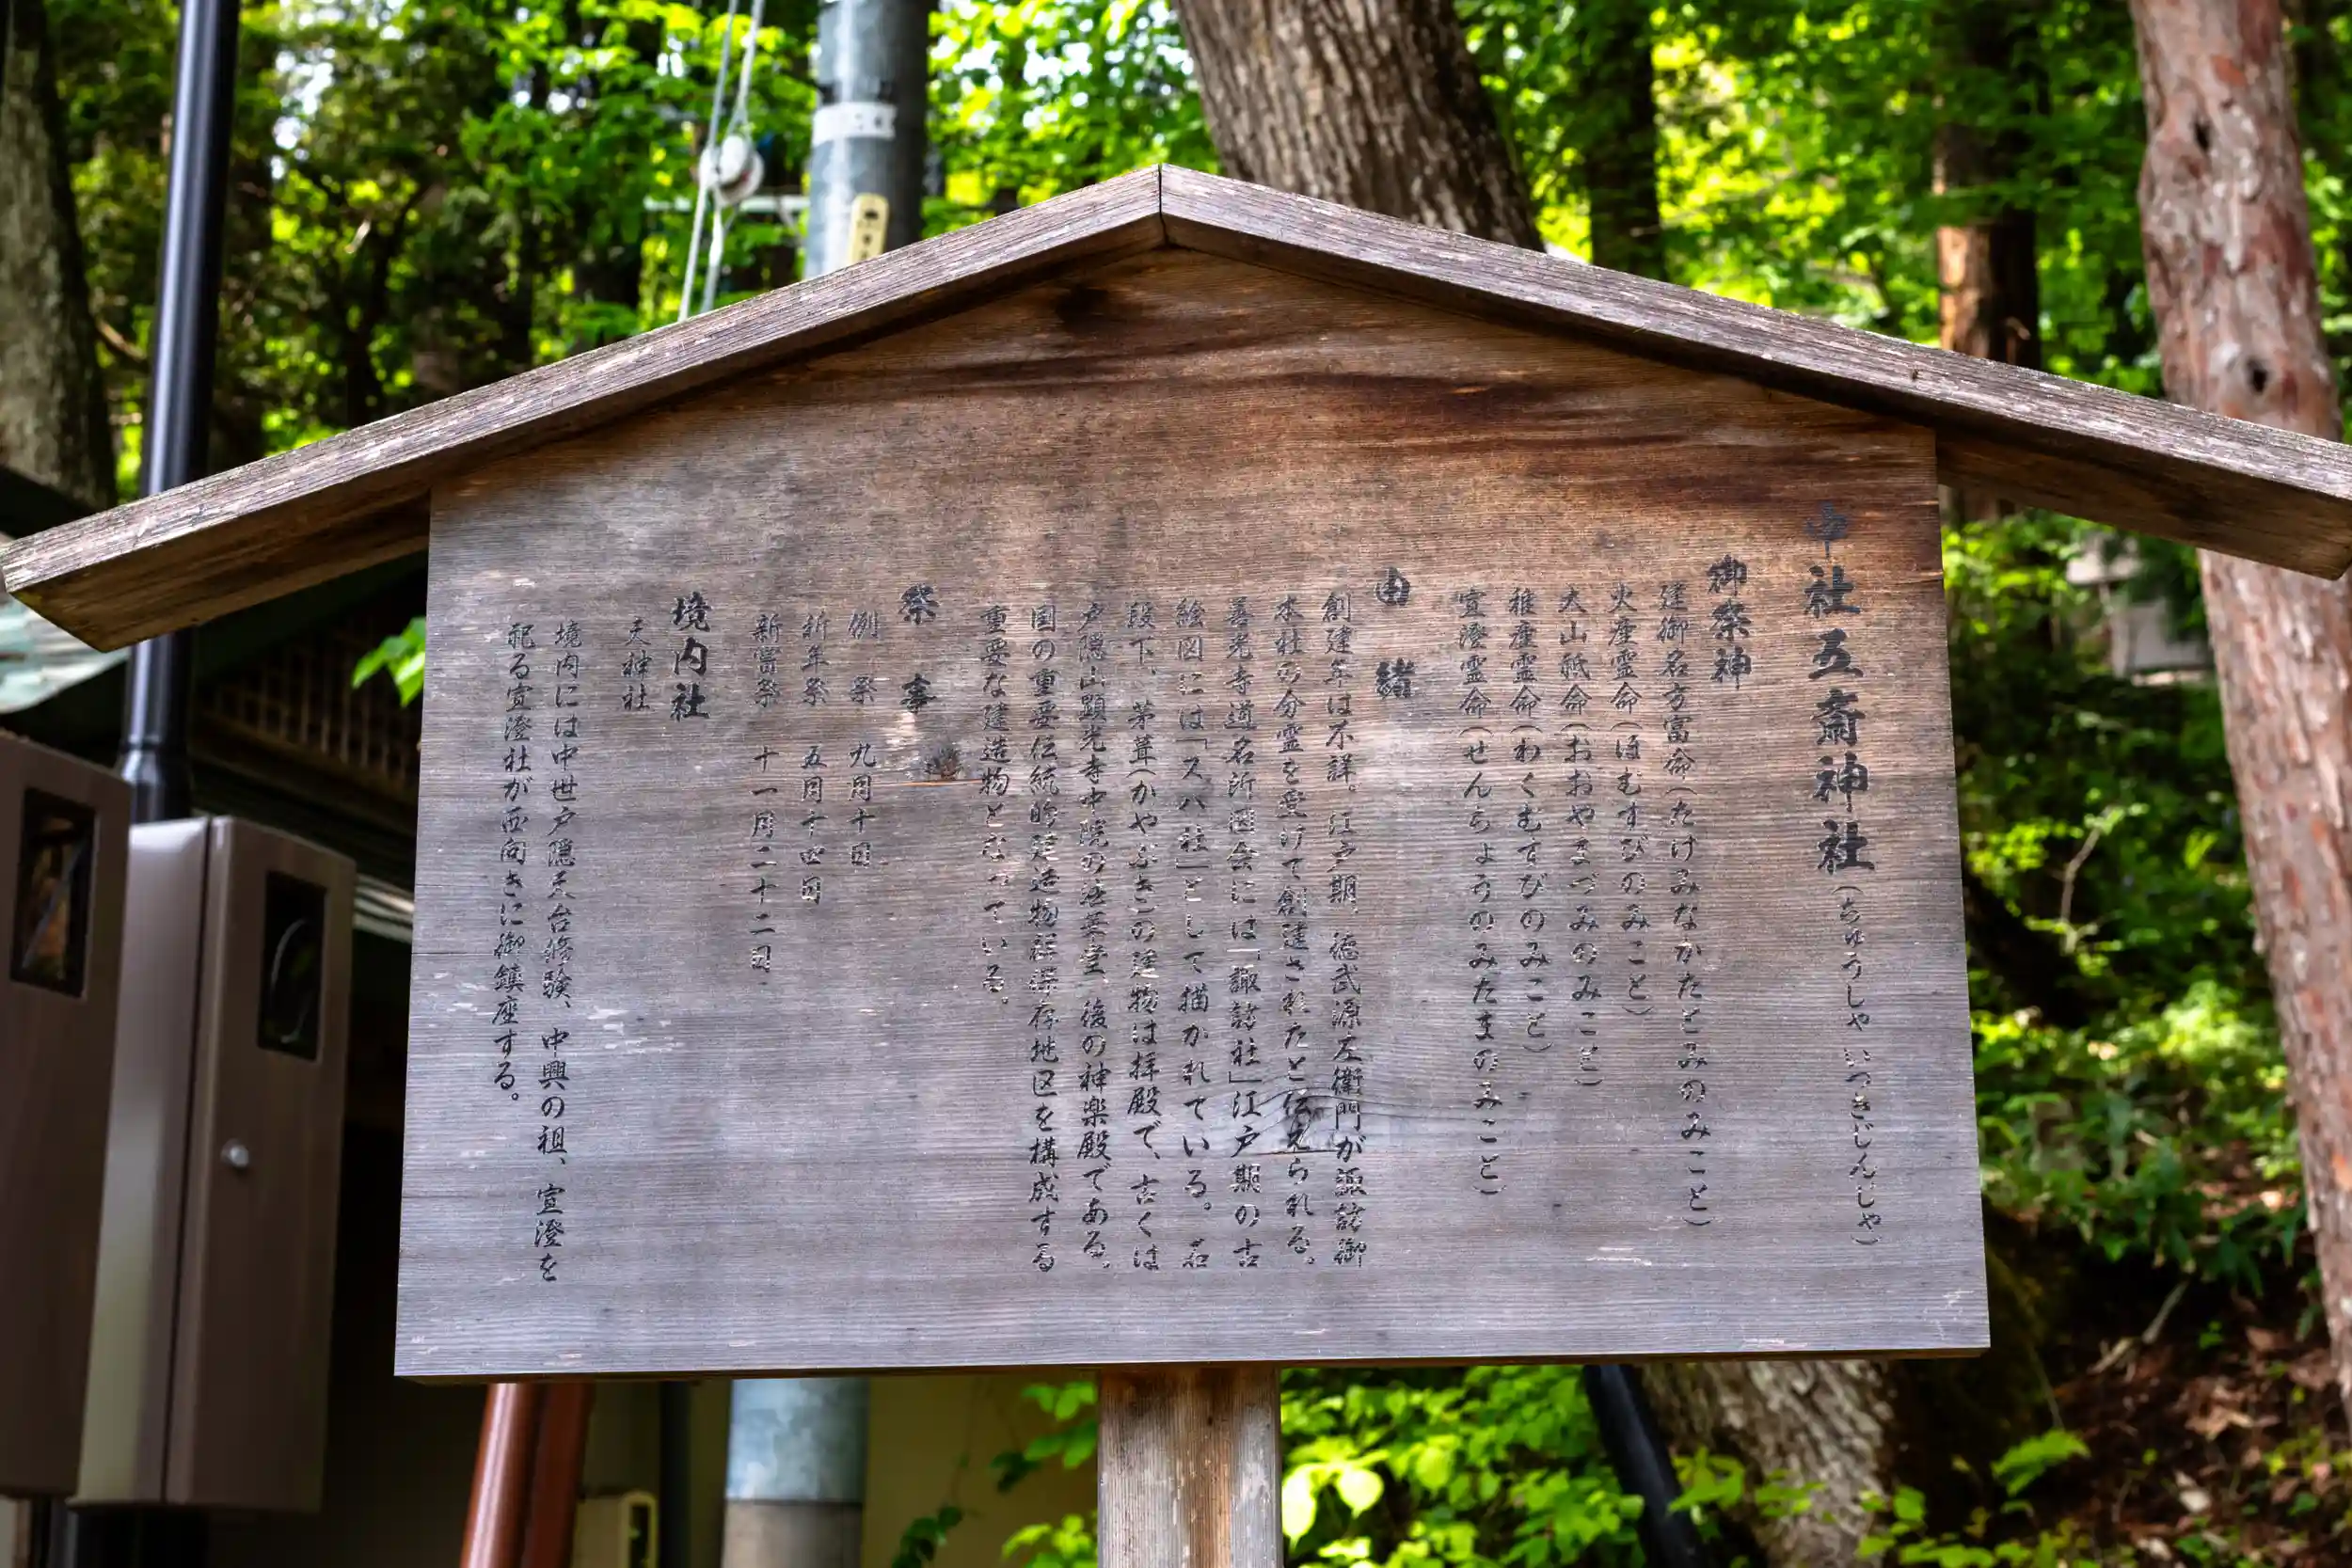 中社五齋神社(ちゅうしゃ いつきじんじゃ)
御祭神
建御名方富命(たけみなかたとみのみこと)
火産霊命(ほむすびのみこと)
大山祗命(おおやまづみのみこと)
稚産霊命(わくむすびのみこと)
宣澄霊命(せんちょうのみたまのみこと)
由緒
創建年は不詳。江戸期、徳武源左衛門が諏訪御
本社の分霊を受けて創建されたと伝えられる。
善光寺道名所図会には「諏訪社」江戸期の古
絵図には「スハ社」として描かれている。石
段下、茅葺(かやぶき)の建物は拝殿で、古くは
戸隠山顕光寺中院の法華堂、後の神楽殿である。
国の重要伝統的建造物群保存地区を構成する
重要な建造物となっている。
祭事
例祭 九月十日
祈年祭 五月十四日
新嘗祭 十一月二十二日
境内社
天神社
境内には中世戸隠天台修験、中興の祖、宣澄を
祀る宣澄社が西向きに御鎮座する。